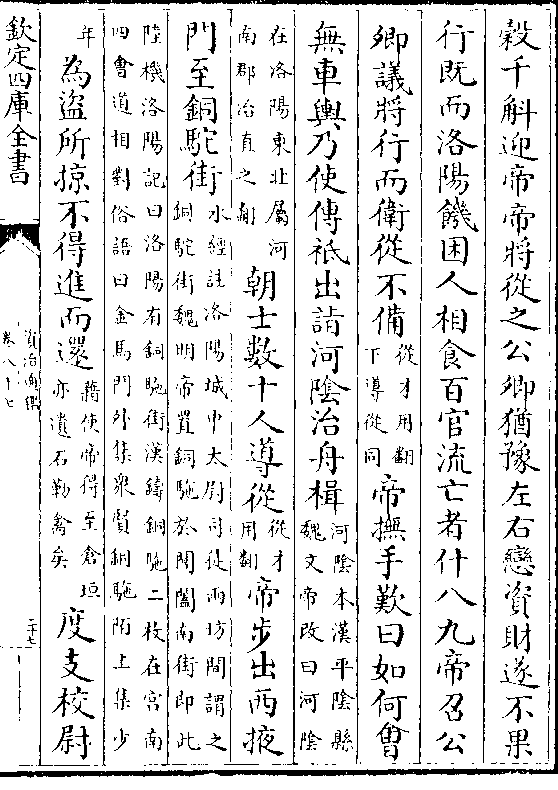 穀千斛迎帝帝將從之公卿猶豫左右戀資財遂不果
行既而洛陽饑困人相食百官流亡者什八九帝召公
卿議將行而衛從不備從才用翻下導從同帝撫手歎曰如何曾
無車輿乃使傅祗出詣河隂治舟楫河隂本漢平隂縣魏文帝改曰河隂
在洛陽東北屬河南郡治直之翻朝士數十人導從從才用翻帝步出西掖
門至銅駝街水經註洛陽城中太尉司徒兩坊間謂之銅駝街魏明帝置銅駞於閶闔南街即此
陸機洛陽記曰洛陽有銅駞街漢鑄銅駞二枚在宮南四會道相對俗語曰金馬門外集衆賢銅駞陌上集少
年為盜所掠不得進而還藉使帝得至倉垣亦遺石勒禽矣度支校尉
欽定四庫全書
資治通鑑
卷八十七
二十七